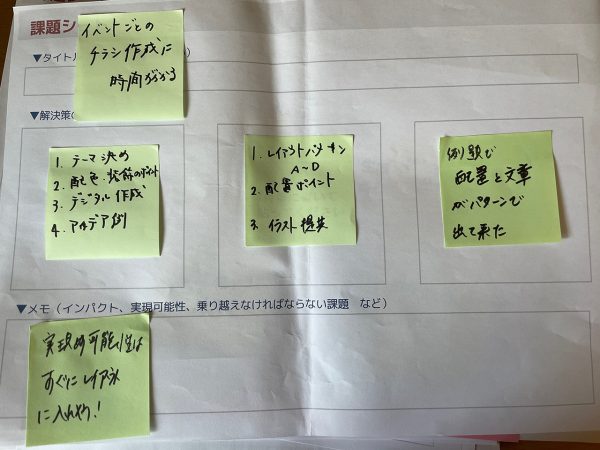 課題シ
イベントごとの
チラシ作成に
時間がかかる
▼タイトル
)
▼解決策の
1. テーマ決め
2. 配色・装飾のポイント
3. デジタル作成
4. アイデア例
1. レイアウトパターン
A〜D
2. 配置ポイント
3. イラスト提案
例題で
配置と文章
がパターンで
出て来た
▼メモ（インパクト、実現可能性、乗り越えなければならない課題 など）
実現可能性は
すぐにレイアウト
に入れやすい!